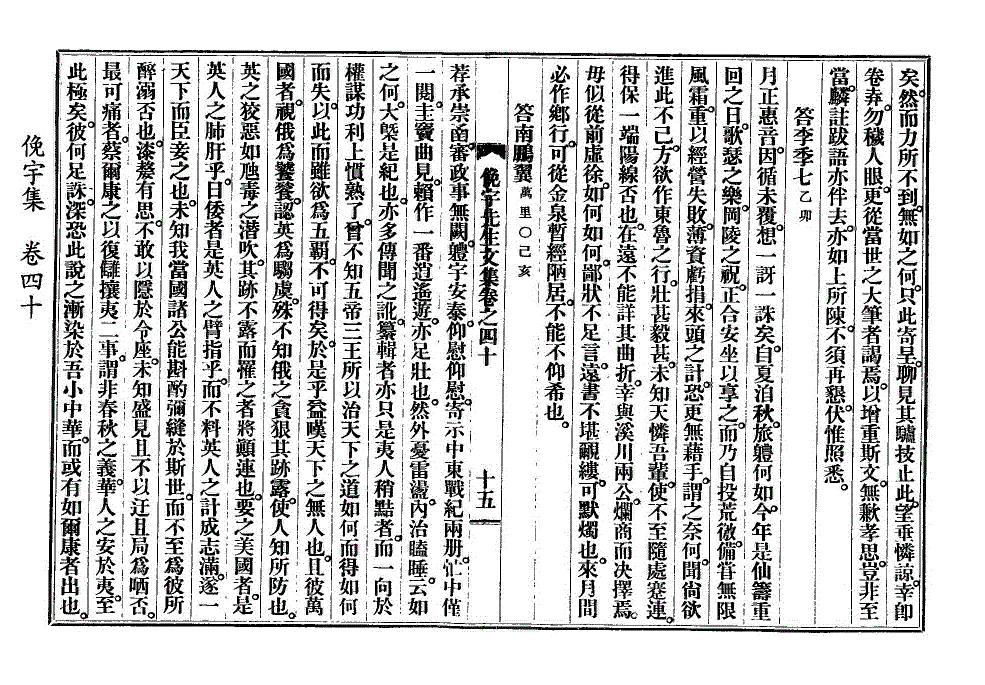 矣。然而力所不到。無如之何。只此寄呈。聊見其驢技止此。望垂憐諒。幸卽
卷弆。勿穢人眼。更從當世之大筆者謁焉。以增重斯文。無歉孝思。豈非至
當。麟註跋語亦伴去。亦如上所陳。不須再懇。伏惟照悉。
答李季七 乙卯
月正惠音。因循未覆。想一訝一誅矣。自夏洎秋。旅軆何如。今年是仙籌重
回之日。歌瑟之樂。岡陵之祝。正合安坐以享之。而乃自投荒徼。備甞無限
風霜。重以經營失敗。薄資虧捐。來頭之計。恐更無藉手。謂之奈何。聞尙欲
進此不已。方欲作東魯之行。壯甚毅甚。未知天憐吾輩。使不至隨處蹇連。
得保一端陽線否也。在遠不能詳其曲折。幸與溪川兩公。爛商而决擇焉。
毋似從前虛徐。如何如何。鄙狀不足言。遠書不堪覼縷。可默燭也。來月間
必作鄕行。可從金泉暫經陋居。不能不仰希也。
答南鵬翼 萬里○己亥
俛宇先生文集卷之四十
十五
荐承崇函。審政事無闕。軆宇安泰。仰慰仰慰。寄示中東戰紀兩册。忙中僅
一閱。圭竇曲見。賴作一番逍遙遊。亦足壯也。然外憂雷盪。內治瞌睡。云如
之何。大槩是紀也。亦多傳聞之訛。纂輯者亦只是夷人稍黠者。而一向於
權謀功利上慣熟了。曾不知五帝三王所以治天下之道如何而得如何
而失。以此而雖欲爲五覇。不可得矣。於是乎益嘆天下之無人也。且彼萬
國者。視俄爲饕餮。認英爲騶虞。殊不知俄之貪狠。其跡露。使人知所防也。
英之狡惡。如虺毒之潛吹。其跡不露而罹之者將顚連也。要之美國者。是
英人之肺肝乎。日倭者是英人之臂指乎。而不料英人之計成志滿。遂一
天下而臣妾之也。未知我當國諸公能斟酌彌縫於斯世。而不至爲彼所
醉溺否也。漆嫠有思。不敢以隱於令座。未知盛見且不以迂且局爲哂否。
最可痛者。蔡爾康之以復讎攘夷二事。謂非春秋之義。華人之安於夷。至
此極矣。彼何足誅。深恐此說之漸染於吾小中華。而或有如爾康者出也。
俛宇集 卷四十